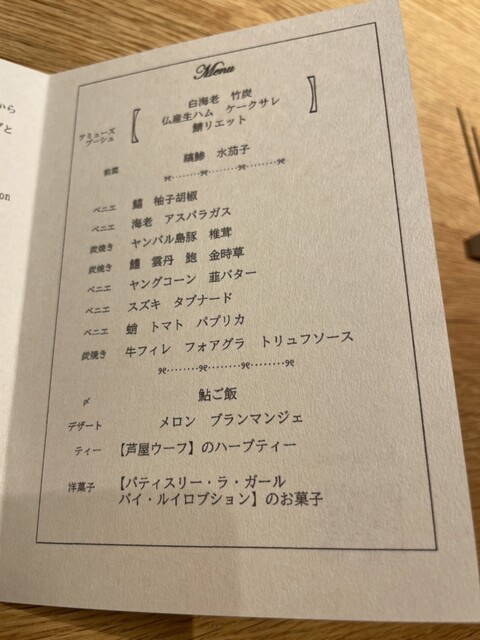 から
ずと
on
Menu
アミューズ
ブーシュ
白海老 竹炭
仏産生ハム ケークサレ
鯖リエット
前菜 縞鯵 水茄子
ベニエ 鱧 柚子胡椒
ベニエ 海老 アスパラガス
炭焼き ヤンバル島豚 椎茸
炭焼き 鱧 雲丹 鮑 金時草
ベニエ ヤングコーン 韮バター
ベニエ スズキ タプナード
ベニエ 蛸 トマト パプリカ
炭焼き 牛フィレ フォアグラ トリュフソース
〆 鮎ご飯
デザート メロン ブランマンジェ
ティー 【芦屋ウーフ】のハーブティー
洋菓子 【パティスリー・ラ・ガール
バイ・ルイロブション】のお菓子